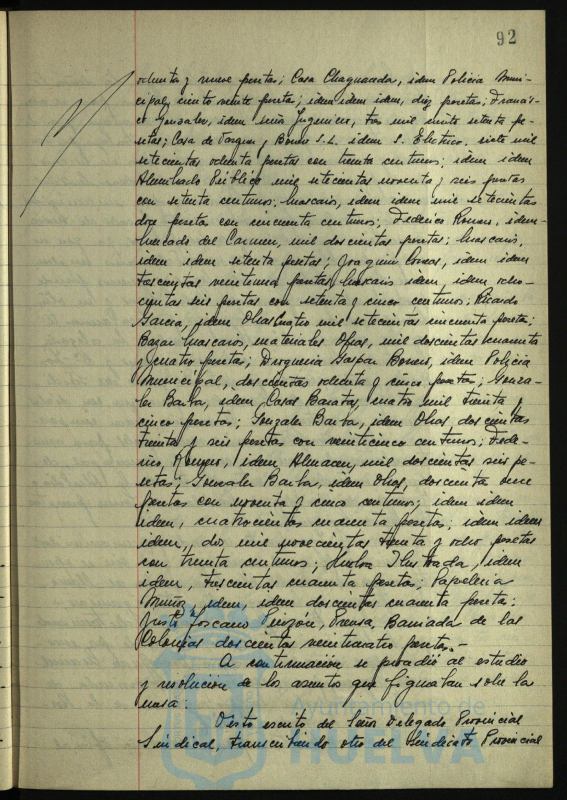 92
ochenta y nueve pesetas; Casa Chaguaceda, idem Policia Muni-
cipal, ciento veinte pesetas; idem idem idem, diez pesetas; Francis-
co Gonzalez, idem Señor Ingeniero, tres mil ciento setenta pe-
setas; Casa de Vazquez y Bonero S.L. idem S. Electrico, siete mil
setecientas ochenta pesetas con treinta centimos; idem idem
Alumbrado Público mil setecientas noventa y seis pesetas
con setenta centimos; Mascaros, idem idem mil setecientas
doce pesetas con cincuenta centimos; Federico Romero, idem
Mercado del Carmen, mil doscientas pesetas; Mascaros,
idem idem setenta pesetas; Joaquin idem idem
trescientas pesetas Mascaros idem idem ocho-
cientas seis pesetas con setenta y cinco centimos; Ricardo
Garcia, idem Obras cuatro mil setecientas cincuenta pesetas;
Bazar Mascaros, materiales Obras, mil doscientas cuarenta
y cuatro pesetas; Drogueria Gaspar Bonero, idem Policia
Municipal, doscientas ochenta y cinco pesetas; Gonza-
lez Barba, idem Casas Baratas, cuatro mil treinta y
cinco pesetas; Gonzalez Barba, idem Obras doscientas
treinta y seis pesetas con veinticinco centimos; Fede-
rico Romero, idem Almacen, mil doscientas seis pe-
setas; Gonzalez Barba, idem Obras, doscienta once
pesetas con noventa y cinco centimos; idem idem
idem, cuatrocientas cuarenta pesetas; idem idem
idem, dos mil novecientas treinta y ocho pesetas
con treinta centimos; Huelva Ilustrada, idem
idem, trescientas cuarenta pesetas; Papeleria
Muñoz, idem, idem doscientas cuarenta pesetas;
Justo Toscano Pinzon, Prensa, Barriada de las
Colonias doscientas veinticuatro pesetas.-
A continuación se procedió al estudio
y resolución de los asuntos que figuraban sobre la
mesa:
Visto escrito del Señor Delegado Provincial
Sindical, transcribiendo otro del Sindicato Provincial
Ayuntamiento de
HUELVA